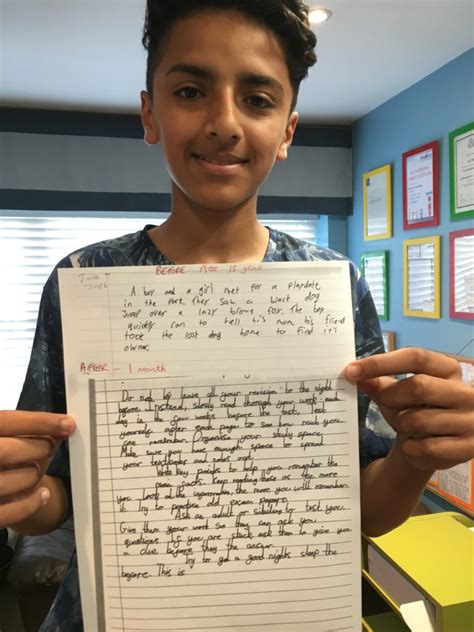 June 2016
BEFORE Age 13 years
A boy and a girl met for a playdate
in the park, they saw a black dog
Jump over a lazy brown fox. The boy
quickly ran to tell his mom, his friend
took the lost dog home to find it's
owner.
AFTER - 1 month
Do not leave all your revision to the night
before. Instead, slowly read through your work each
day in the weeks before the test. Test
yourself after each page to see how much you
can remember. Organise your study space.
Make sure you have enough space to spread
your textbooks and notes out.
Write key points to help you remember the
main facts. Keep reading these as the more
you look at the information, the more you will remember
it. Try to practise old exam papers.
Ask an adult or sibling to test you.
Give them your work so they can ask you
questions. If you are stuck, ask them to give you
a clue before they the answer.
Try to get a good nights sleep the
before. This is